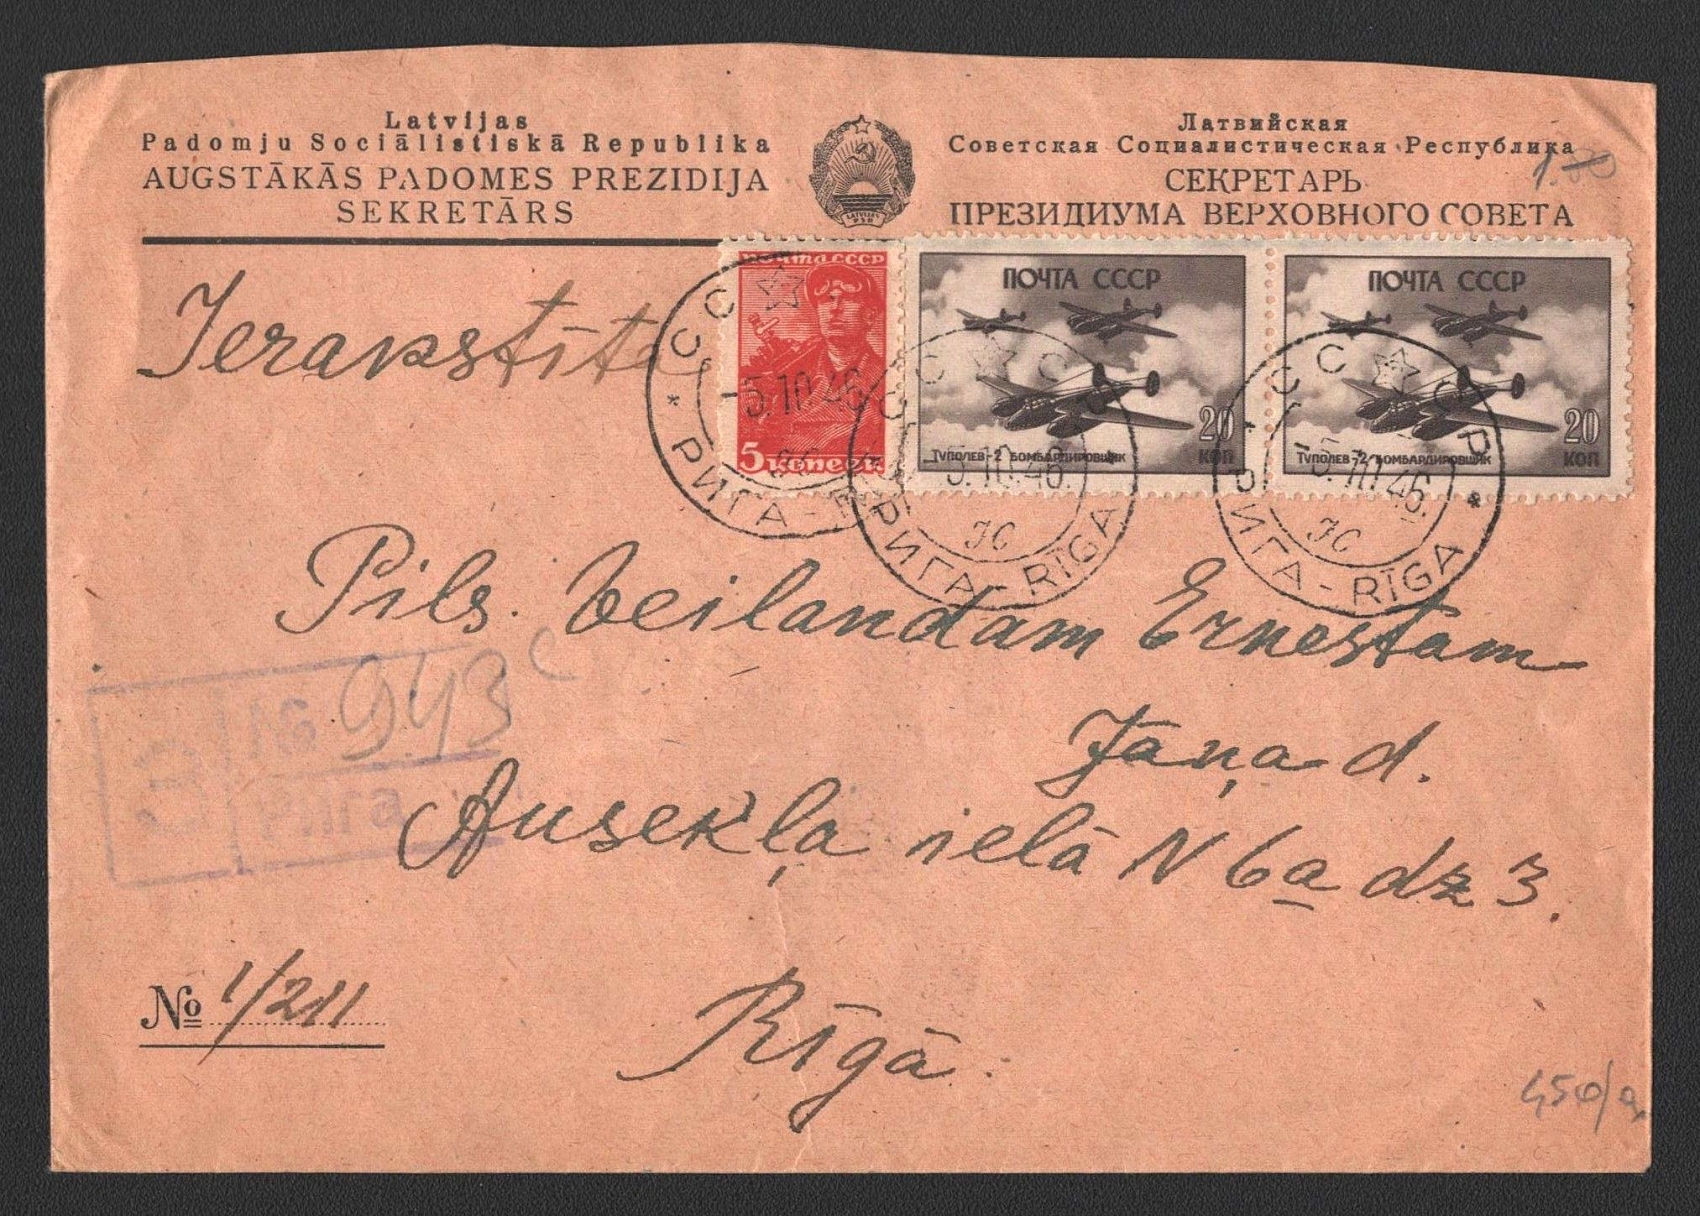 Latvijas
Padomju Sociālistiskā Republika
AUGSTĀKĀS PADOMES PREZIDIJA
SEKRETĀRS
Латвийская
Советская Социалистическая Республика
СЕКРЕТАРЬ
ПРЕЗИДИУМА ВЕРХОВНОГО СОВЕТА
1.80
LATVIJAS
PSR
ПОЧТА СССР
5 КОПЕЕК
ПОЧТА СССР
20
КОП
ТУПОЛЕВ-2 БОМБАРДИРОВЩИК
ПОЧТА СССР
20
КОП
ТУПОЛЕВ-2 БОМБАРДИРОВЩИК
СССР
-5.10.46
РИГА - RĪGA
СССР
-5.10.46.
РИГА - RĪGA
СССР
-5.10.46.
РИГА - RĪGA
Ierakstīta
Pils. Veilandam Ernestam
Jāņa d.
З
№ 943 c
Рига
Ausekļa ielā N 6a dz 3.
Rīgā.
№ 1/211